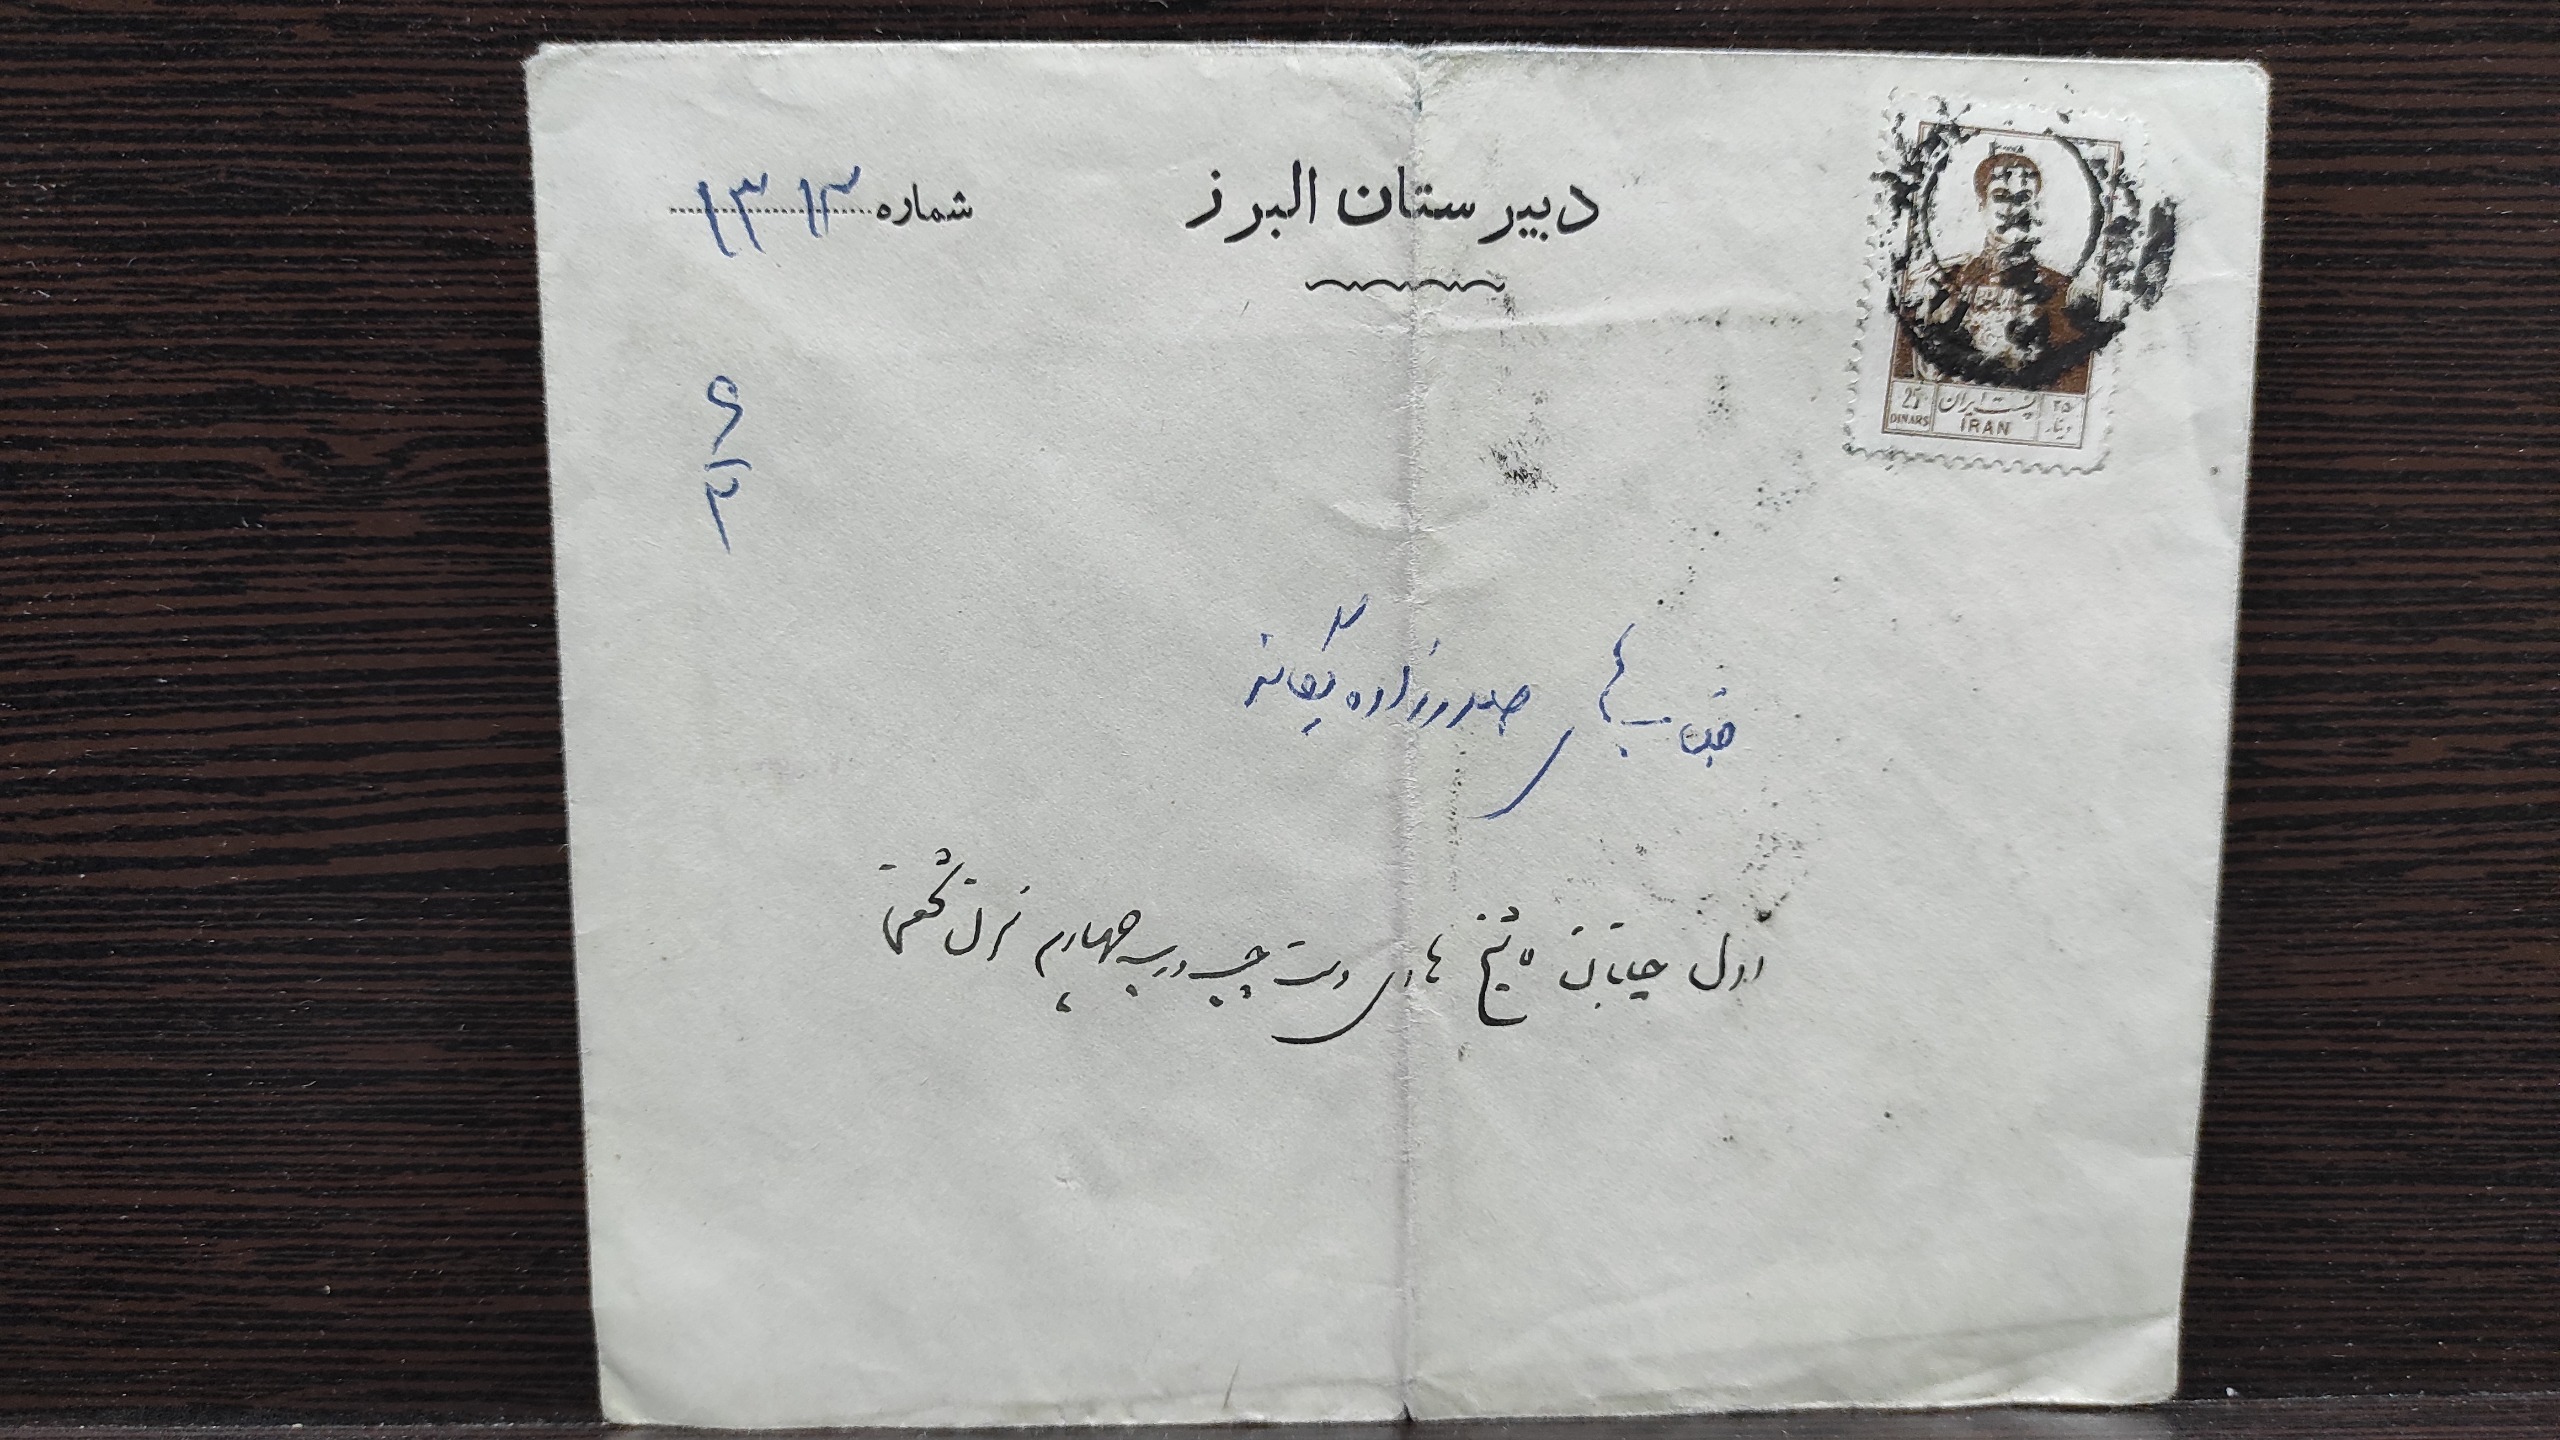 دبیرستان البرز
شماره ۱۳۰۱۲
۶/۲
جناب آقای صفدرزاده یگانه
اول خیابان شیخ هادی دست چپ درب چهارم منزل
25 DINARS پست ایران ۲۵ دینار
IRAN